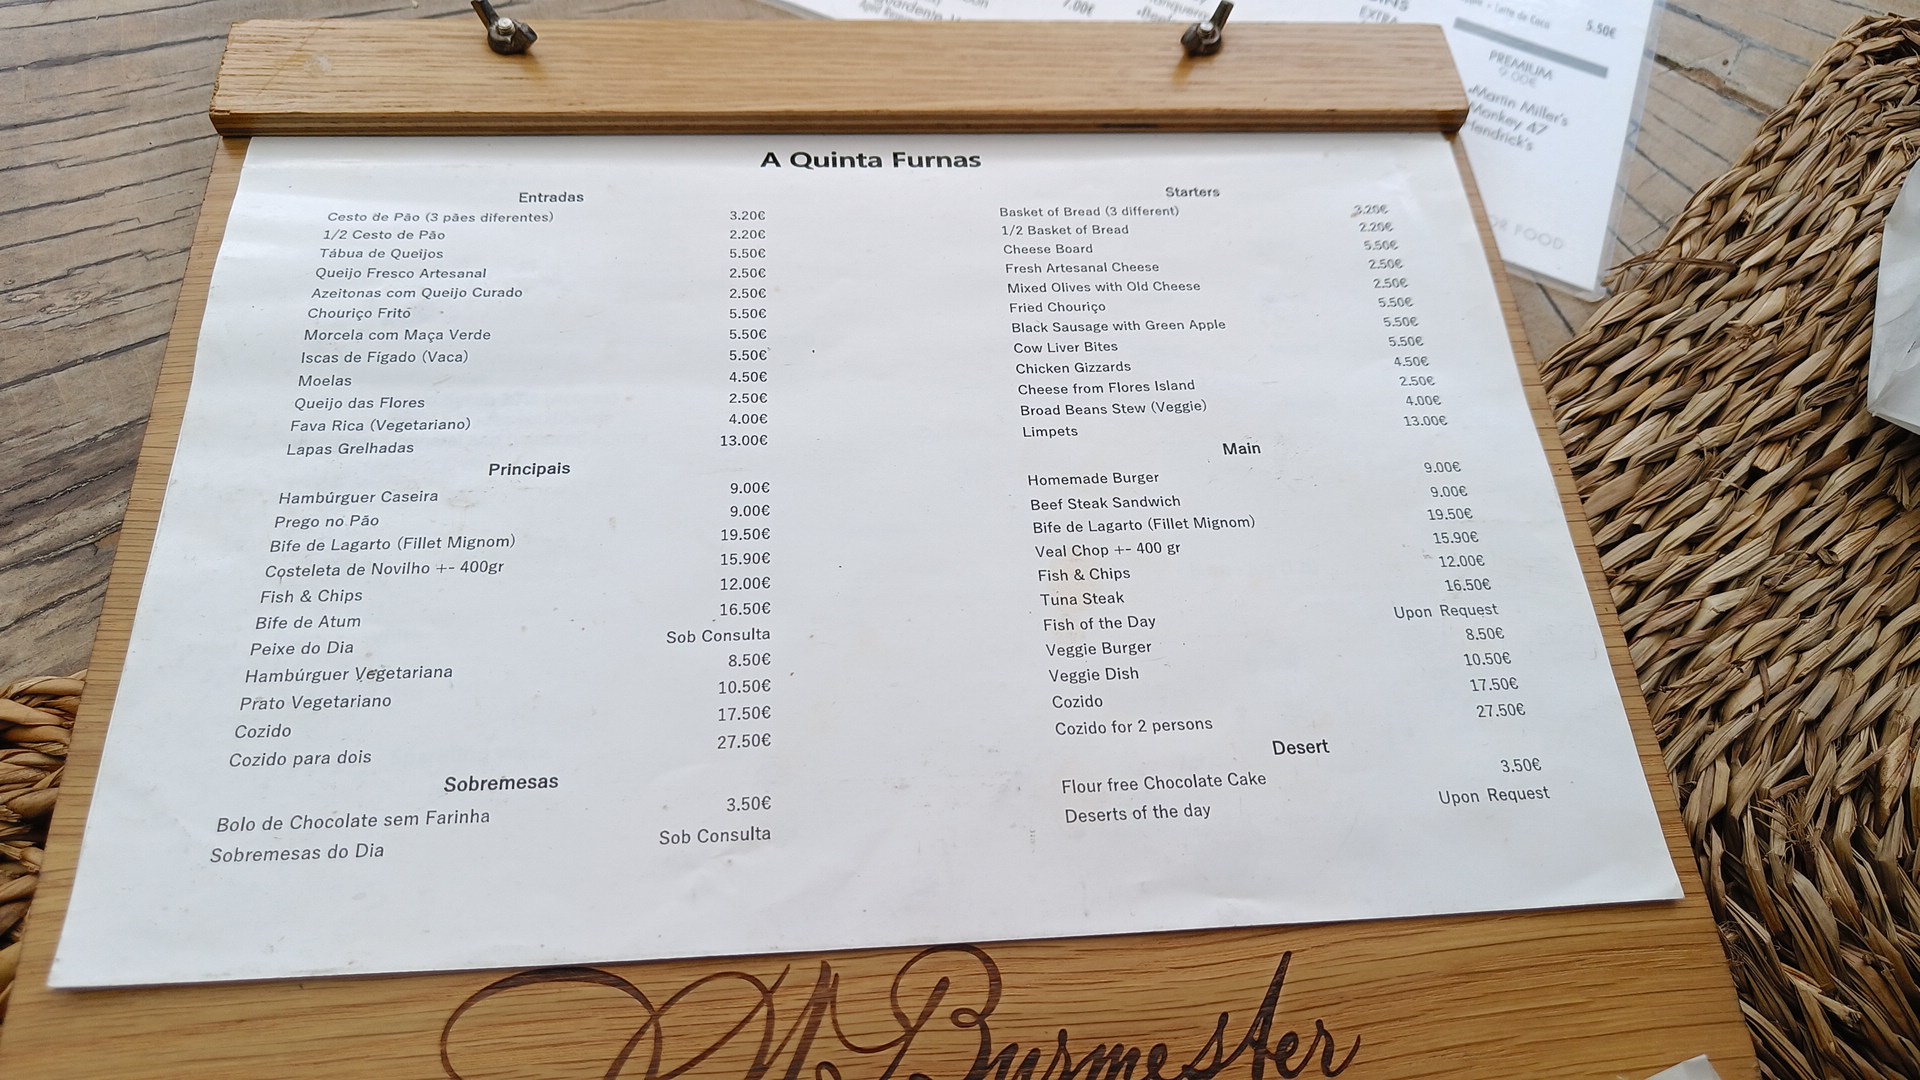 7.00€
EXTRA
5.50€
PREMIUM
9.00€
Martin Miller's
Monkey 47
Hendrick's
OR FOOD
A Quinta Furnas
Entradas
Cesto de Pão (3 pães diferentes) 3.20€
1/2 Cesto de Pão 2.20€
Tábua de Queijos 5.50€
Queijo Fresco Artesanal 2.50€
Azeitonas com Queijo Curado 2.50€
Chouriço Frito 5.50€
Morcela com Maça Verde 5.50€
Iscas de Fígado (Vaca) 5.50€
Moelas 4.50€
Queijo das Flores 2.50€
Fava Rica (Vegetariano) 4.00€
Lapas Grelhadas 13.00€
Principais
Hambúrguer Caseira 9.00€
Prego no Pão 9.00€
Bife de Lagarto (Fillet Mignom) 19.50€
Costeleta de Novilho +- 400gr 15.90€
Fish & Chips 12.00€
Bife de Atum 16.50€
Peixe do Dia Sob Consulta
Hambúrguer Vegetariana 8.50€
Prato Vegetariano 10.50€
Cozido 17.50€
Cozido para dois 27.50€
Sobremesas
Bolo de Chocolate sem Farinha 3.50€
Sobremesas do Dia Sob Consulta
Starters
Basket of Bread (3 different) 3.20€
1/2 Basket of Bread 2.20€
Cheese Board 5.50€
Fresh Artesanal Cheese 2.50€
Mixed Olives with Old Cheese 2.50€
Fried Chouriço 5.50€
Black Sausage with Green Apple 5.50€
Cow Liver Bites 5.50€
Chicken Gizzards 4.50€
Cheese from Flores Island 2.50€
Broad Beans Stew (Veggie) 4.00€
Limpets 13.00€
Main
Homemade Burger 9.00€
Beef Steak Sandwich 9.00€
Bife de Lagarto (Fillet Mignom) 19.50€
Veal Chop +- 400 gr 15.90€
Fish & Chips 12.00€
Tuna Steak 16.50€
Fish of the Day Upon Request
Veggie Burger 8.50€
Veggie Dish 10.50€
Cozido 17.50€
Cozido for 2 persons 27.50€
Desert
Flour free Chocolate Cake 3.50€
Deserts of the day Upon Request
Burmester